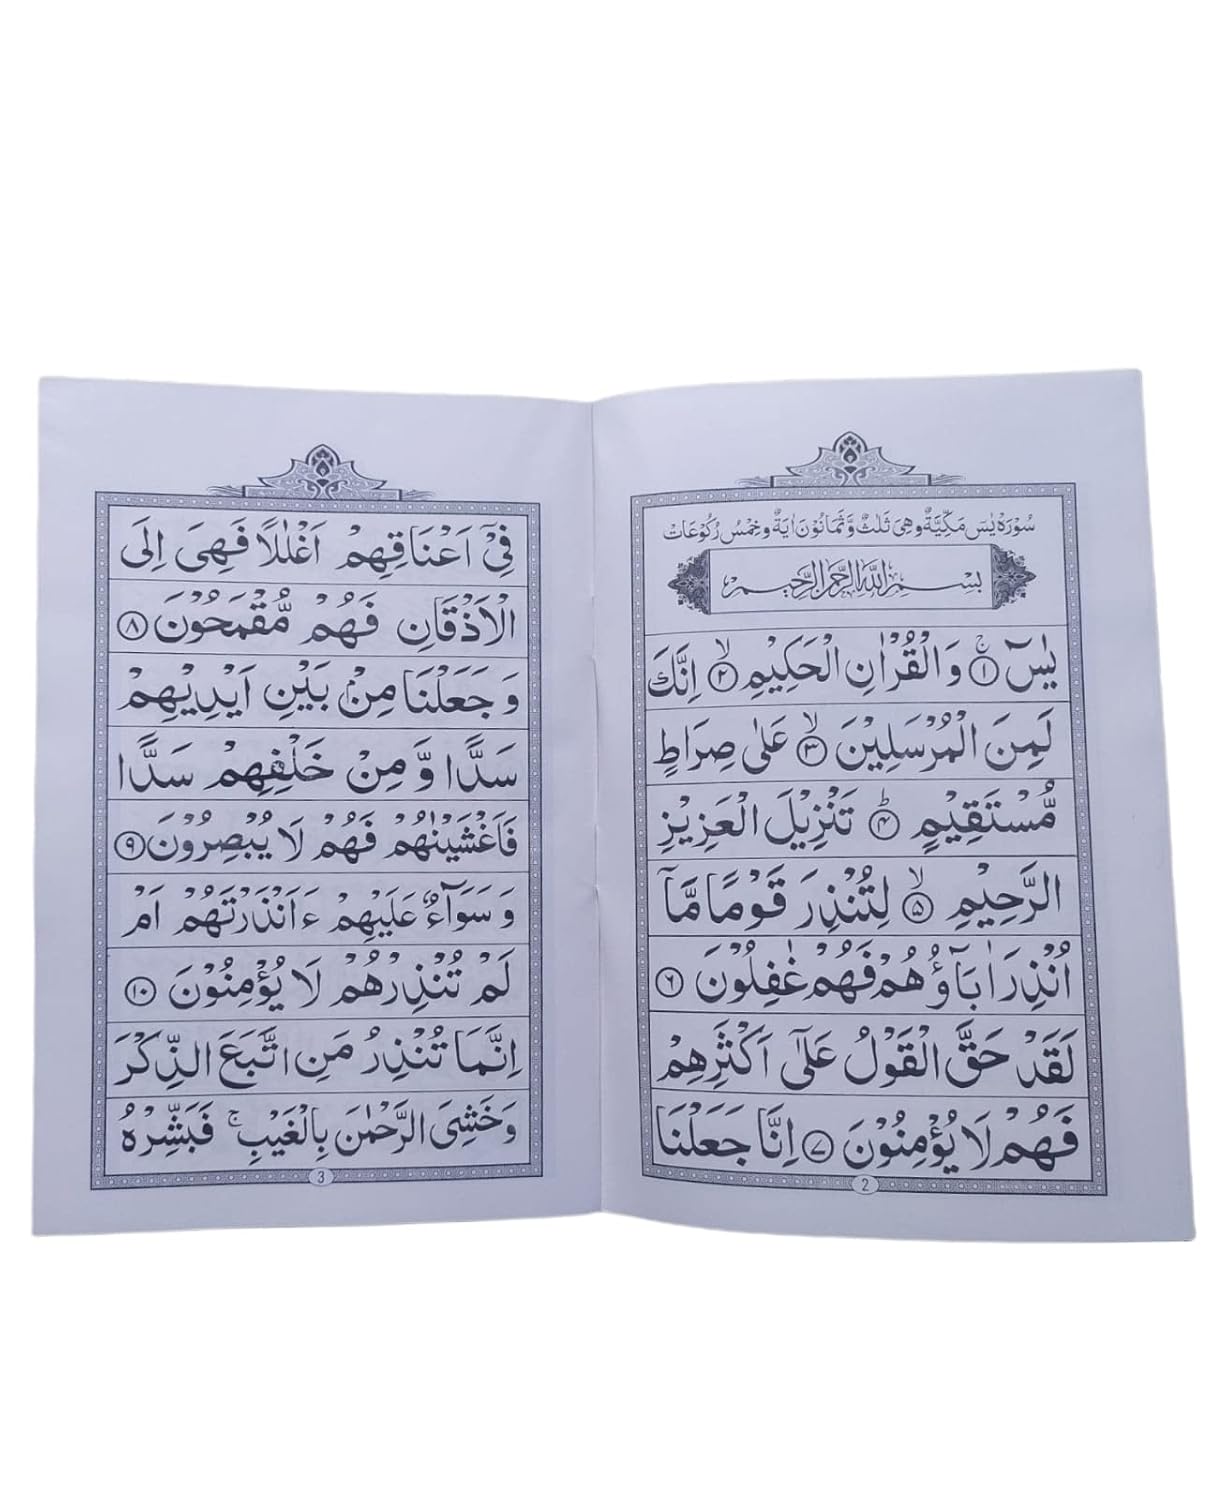 سُوْرَةُ يٰسٓ مَكِّيَّةٌ وَّهِيَ ثَلٰثٌ وَّثَمَانُوْنَ اٰيَةً وَّخَمْسُ رُكُوْعَاتٍ
بِسْمِ اللّٰهِ الرَّحْمٰنِ الرَّحِيْمِ
يٰسٓ ۚ ﴿۱﴾ وَالْقُرْاٰنِ الْحَكِيْمِ ۙ ﴿۲﴾ اِنَّكَ
لَمِنَ الْمُرْسَلِيْنَ ۙ ﴿۳﴾ عَلٰى صِرَاطٍ
مُّسْتَقِيْمٍ ؕ ﴿۴﴾ تَنْزِيْلَ الْعَزِيْزِ
الرَّحِيْمِ ۙ ﴿۵﴾ لِتُنْذِرَ قَوْمًا مَّاۤ
اُنْذِرَ اٰبَآؤُهُمْ فَهُمْ غٰفِلُوْنَ ﴿۶﴾
لَقَدْ حَقَّ الْقَوْلُ عَلٰٓى اَكْثَرِهِمْ
فَهُمْ لَا يُؤْمِنُوْنَ ﴿۷﴾ اِنَّا جَعَلْنَا
2
فِيْٓ اَعْنَاقِهِمْ اَغْلٰلًا فَهِىَ اِلَى
الْاَذْقَانِ فَهُمْ مُّقْمَحُوْنَ ﴿۸﴾
وَجَعَلْنَا مِنْۢ بَيْنِ اَيْدِيْهِمْ
سَدًّا وَّمِنْ خَلْفِهِمْ سَدًّا
فَاَغْشَيْنٰهُمْ فَهُمْ لَا يُبْصِرُوْنَ ﴿۹﴾
وَسَوَآءٌ عَلَيْهِمْ ءَاَنْذَرْتَهُمْ اَمْ
لَمْ تُنْذِرْهُمْ لَا يُؤْمِنُوْنَ ﴿۱۰﴾
اِنَّمَا تُنْذِرُ مَنِ اتَّبَعَ الذِّكْرَ
وَخَشِىَ الرَّحْمٰنَ بِالْغَيْبِ ۚ فَبَشِّرْهُ
3